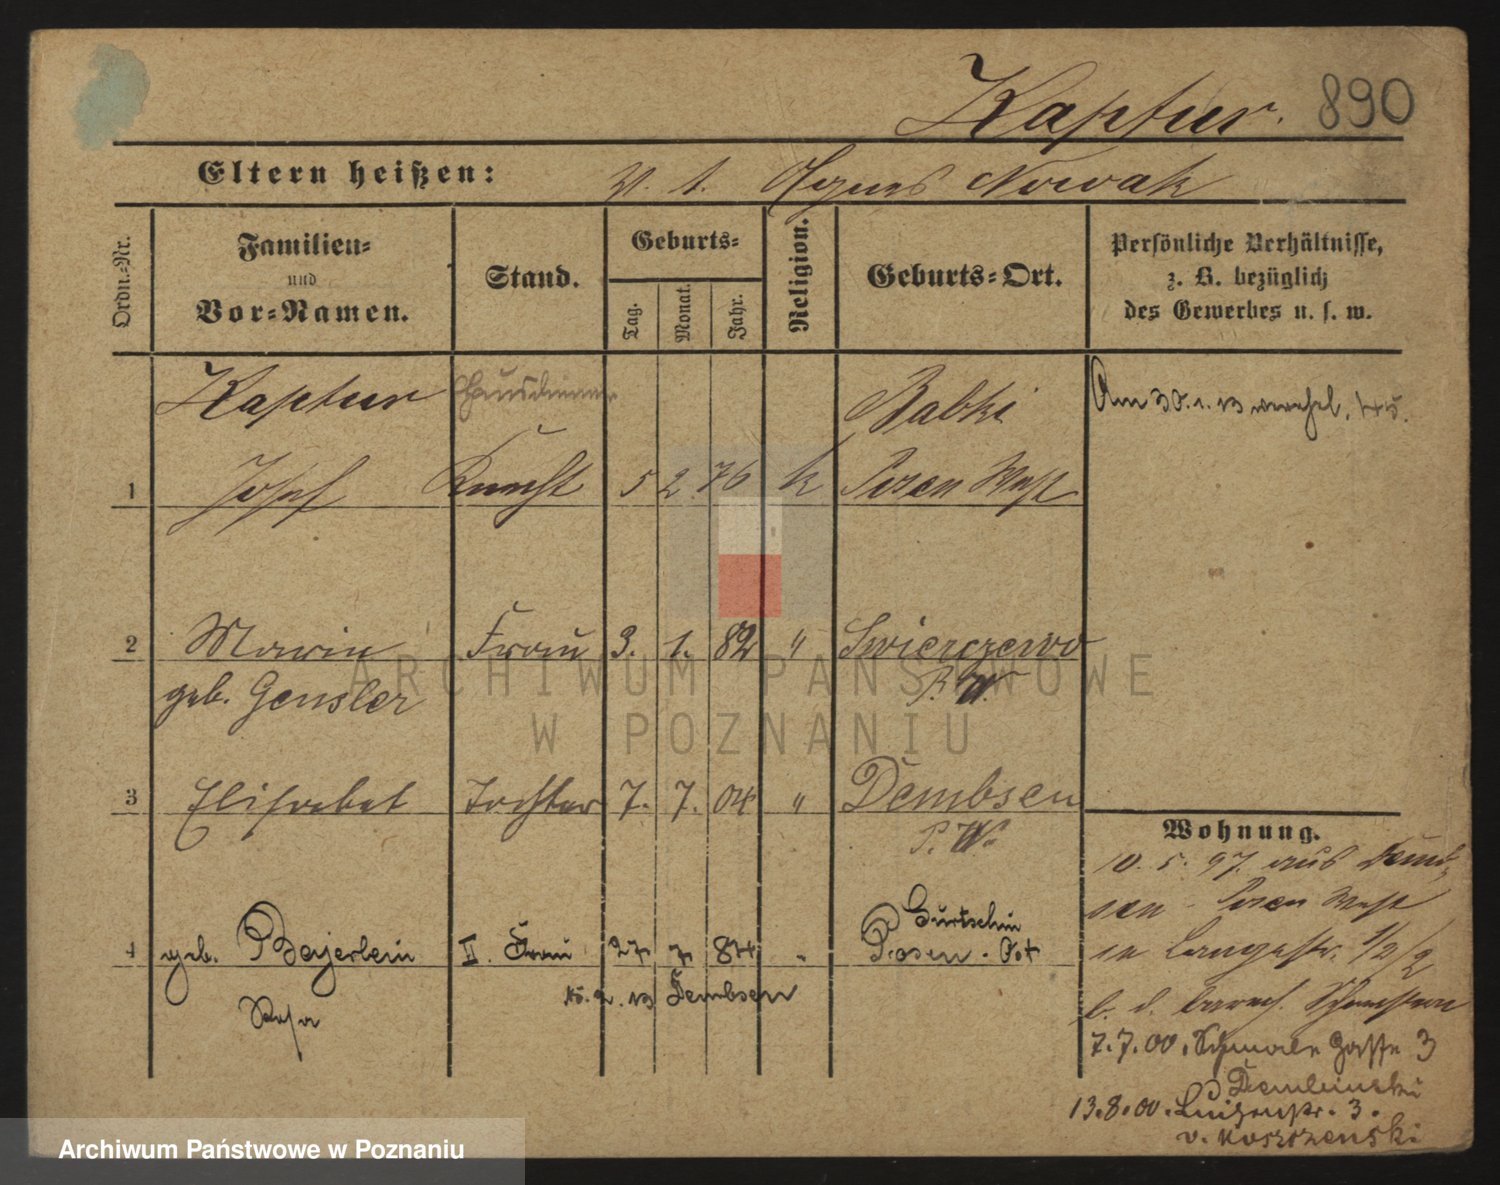 Kaptur. 890
Eltern heißen: V. t. Agnes Nowak
Ordn.-Nr.
Familien-
und
Vor-Namen.
Stand.
Geburts-
Tag.
Monat.
Jahr.
Religion.
Geburts-Ort.
Persönliche Verhältnisse,
z. B. bezüglich
des Gewerbes u. s. w.
Kaptur Hausdiener Babki
Am 30.1.13
1 Josef Knecht 5 2. 76 k Posen West
2 Marie Frau 3. 1. 82 " Swierczewo
geb. Gensler P. W.
3 Elisabet Tochter 7. 7. 04 " Dembsen
P. W.
Gurtschin
4 geb. Beyerlein II. Frau 27 7. 84 " Posen-Ost
15.2.13 Dembsen
Rosa
Wohnung.
10. 5. 97. aus Demb-
sen - Posen West
in Langestr. 1/2/2
b. d.
7.7.00. Schmale Gasse 3
Dembinski
13.8.00. Luisenstr. 3.
v. Koszczenski
ARCHIWUM PAŃSTWOWE
W POZNANIU
Archiwum Państwowe w Poznaniu